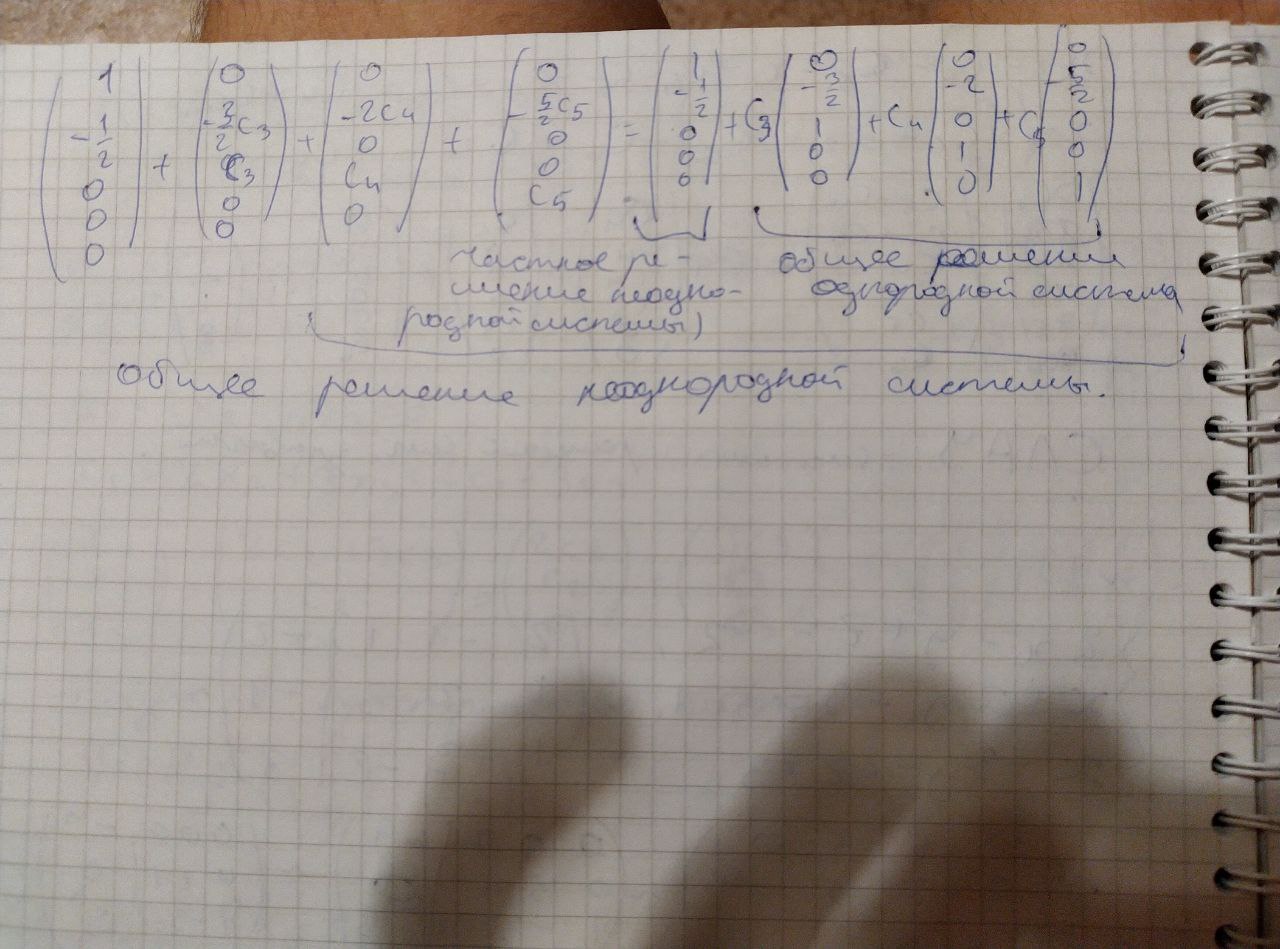 (1, -1/2, 0, 0, 0) + (0, -3/2 C₃, C₃, 0, 0) + (0, -2C₄, 0, C₄, 0) + (0, -5/2 C₅, 0, 0, C₅) = (1, -1/2, 0, 0, 0) + C₃ (0, -3/2, 1, 0, 0) + C₄ (0, -2, 0, 1, 0) + C₅ (0, -5/2, 0, 0, 1)
частное ре-
шение неодно-
родной системы)
общее решение
однородной система
общее решение неоднородной системы.